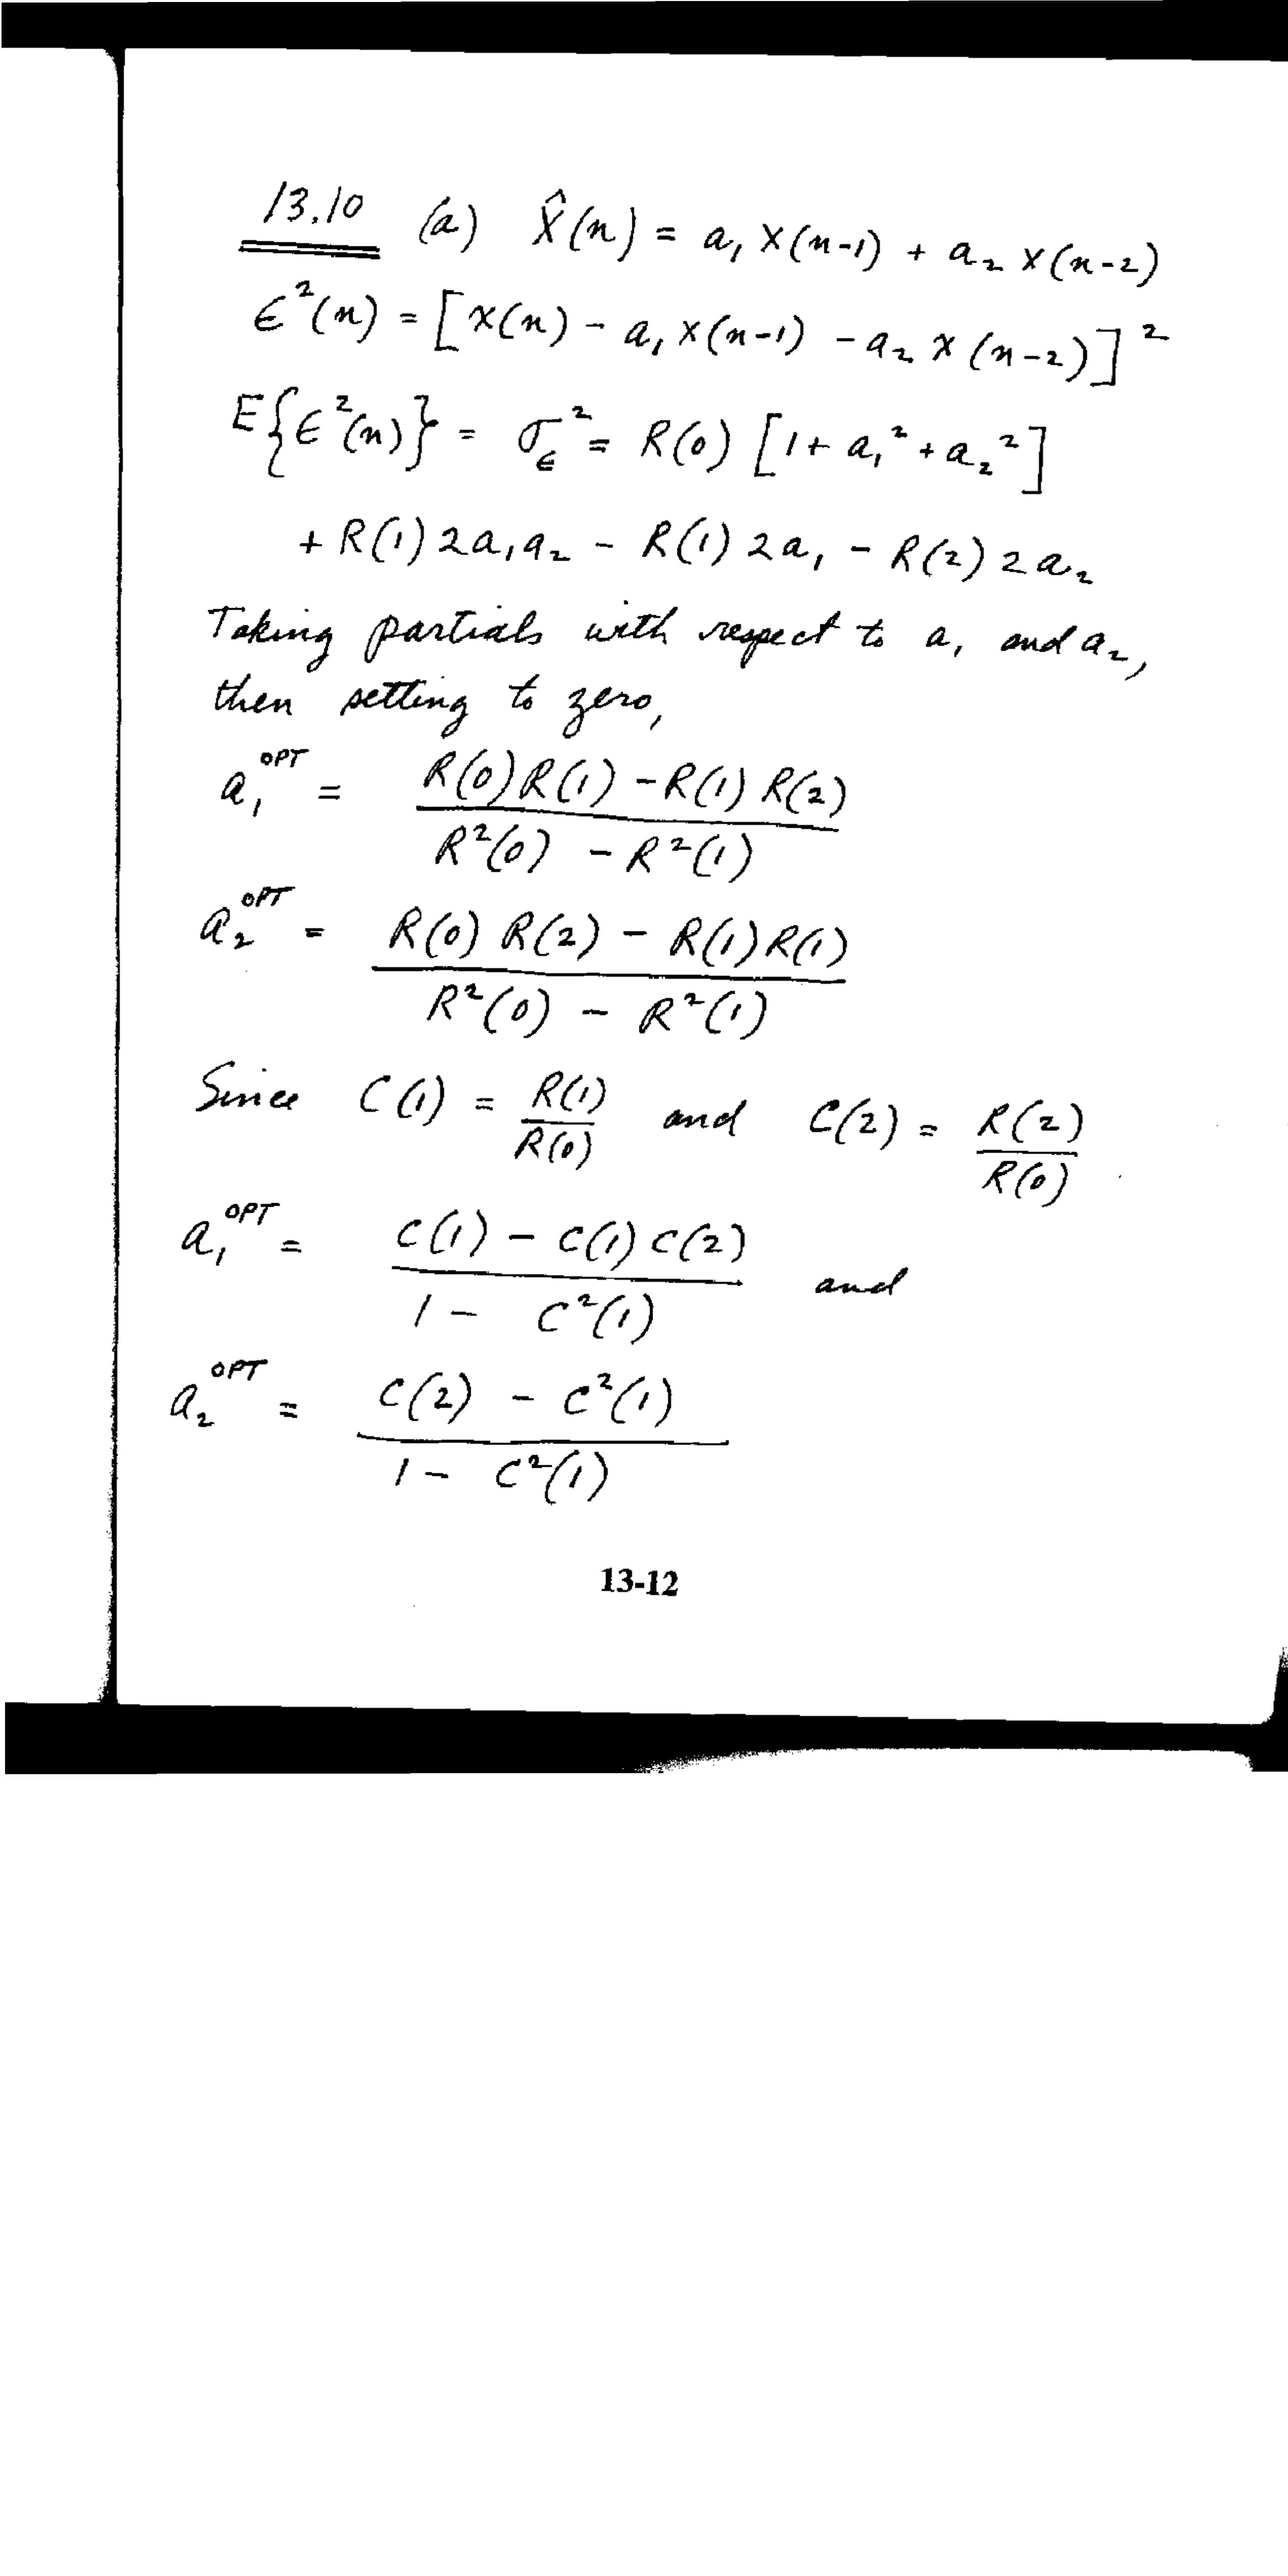 13.10 (a) X̂(n) = a₁ x(n-1) + a₂ x(n-2)
ϵ²(n) = [x(n) - a₁ x(n-1) - a₂ x(n-2)]²
E{ϵ²(n)} = σ_ϵ² = R(0) [1 + a₁² + a₂²]
+ R(1) 2a₁a₂ - R(1) 2a₁ - R(2) 2a₂
Taking partials with respect to a₁ and a₂,
then setting to zero,
a₁^OPT = (R(0)R(1) - R(1)R(2)) / (R²(0) - R²(1))
a₂^OPT = (R(0) R(2) - R(1)R(1)) / (R²(0) - R²(1))
Since C(1) = R(1)/R(0) and C(2) = R(2)/R(0)
a₁^OPT = (C(1) - C(1)C(2)) / (1 - C²(1)) and
a₂^OPT = (C(2) - C²(1)) / (1 - C²(1))
13-12